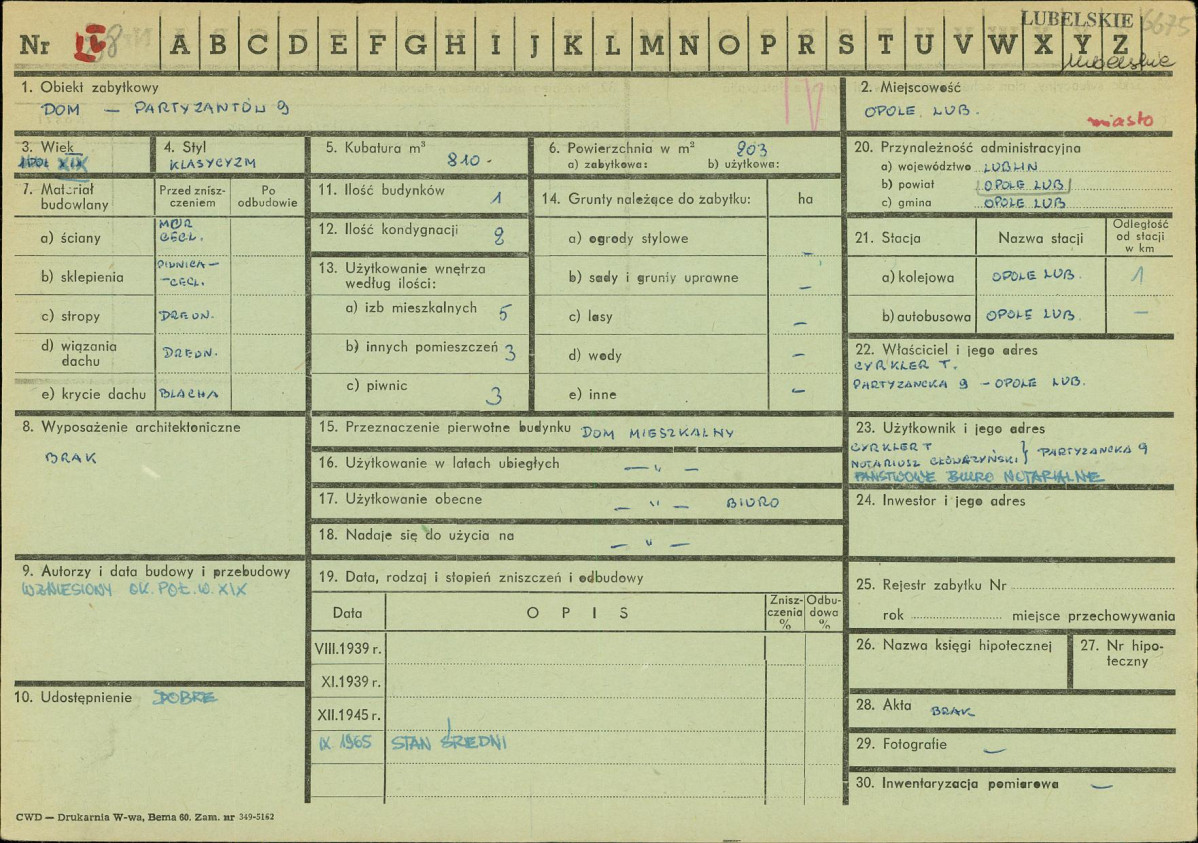 LUBELSKIE 6675
Nr IV 8 A B C D E F G H I J K L M N O P R S T U V W X Y Z
lubelskie
1. Obiekt zabytkowy
DOM — PARTYZANTÓW 9
IV
2. Miejscowość
OPOLE LUB.
miasto
3. Wiek
XIX
4. Styl
KLASYCYZM
5. Kubatura m³
810.-
6. Powierzchnia w m² 203
a) zabytkowa: b) użytkowa:
7. Materiał budowlany
Przed zniszczeniem
Po odbudowie
a) ściany
MUR
CEGL.
b) sklepienia
PIWNICA —
-CEGL.
c) stropy DREWN.
d) wiązania dachu DREWN.
e) krycie dachu BLACHA
8. Wyposażenie architektoniczne
BRAK
9. Autorzy i data budowy i przebudowy
WZNIESIONY OK. POŁ. W. XIX
10. Udostępnienie DOBRE
11. Ilość budynków 1
12. Ilość kondygnacji 2
13. Użytkowanie wnętrza
według ilości:
a) izb mieszkalnych 5
b) innych pomieszczeń 3
c) piwnic 3
14. Grunty należące do zabytku: ha
a) ogrody stylowe –
b) sady i grunty uprawne –
c) lasy –
d) wody –
e) inne –
15. Przeznaczenie pierwotne budynku DOM MIESZKALNY
16. Użytkowanie w latach ubiegłych — " —
17. Użytkowanie obecne — " — BIURO
18. Nadaje się do użycia na — " —
19. Data, rodzaj i stopień zniszczeń i odbudowy
Data OPIS Zniszczenia % Odbudowa %
VIII.1939 r.
XI.1939 r.
XII.1945 r.
IX. 1965 STAN ŚREDNI
20. Przynależność administracyjna
a) województwo LUBLIN
b) powiat OPOLE LUB
c) gmina OPOLE LUB
21. Stacja Nazwa stacji Odległość od stacji w km
a) kolejowa OPOLE LUB. 1
b) autobusowa OPOLE LUB. —
22. Właściciel i jego adres
CYRKLER T.
PARTYZANCKA 9 – OPOLE LUB.
23. Użytkownik i jego adres
CYRKLER T } PARTYZANCKA 9
NOTARIUSZ
PAŃSTWOWE BIURO NOTARIALNE
24. Inwestor i jego adres
25. Rejestr zabytku Nr
rok miejsce przechowywania
26. Nazwa księgi hipotecznej
27. Nr hipoteczny
28. Akta BRAK
29. Fotografie –
30. Inwentaryzacja pomiarowa –
CWD — Drukarnia W-wa, Bema 60. Zam. nr 349-5162